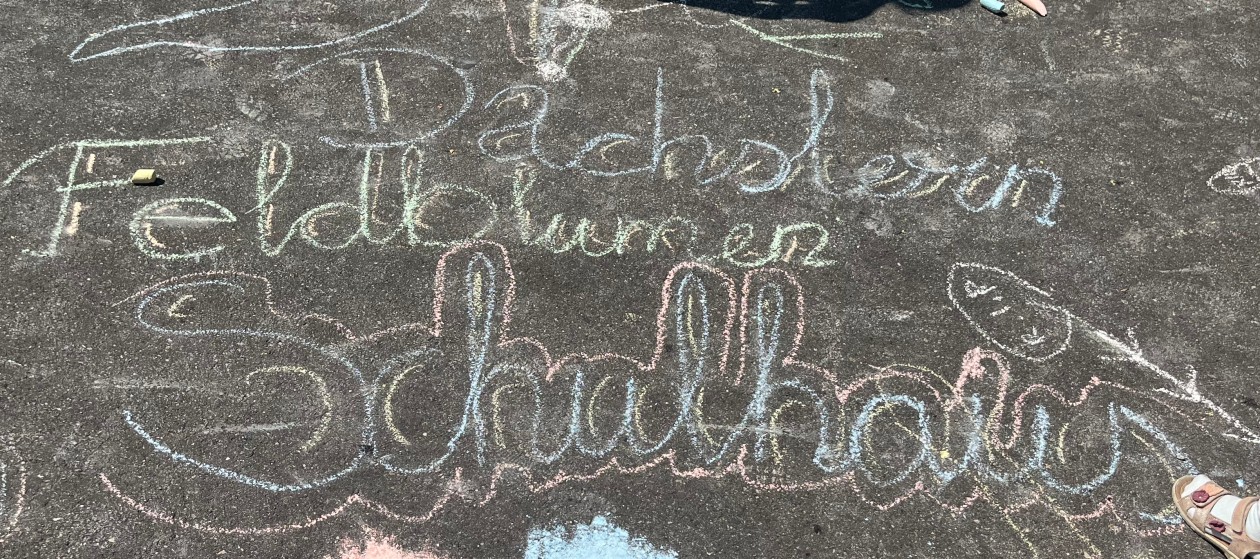 Dachstern
Feldblumen
Schulhaus